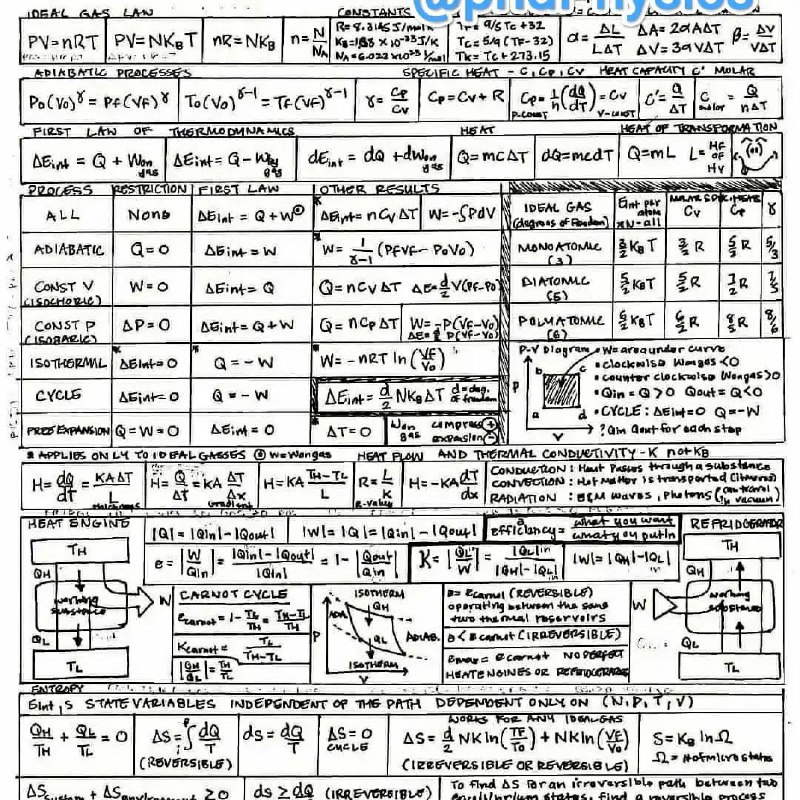 @phdPhysics
IDEAL GAS LAW CONSTANTS
PV=nRT PV=NK_BT nR=NK_B n=N/N_A
T_F=9/5T_C+32
T_C=5/9(T_F-32)
T_K=T_C+273.15
α=ΔL/LΔT ΔA=2αAΔT ΔV=3αVΔT β=ΔV/VΔT
ADIABATIC PROCESSES SPECIFIC HEAT - C, C_P, C_V HEAT CAPACITY C' MOLAR
P_0(V_0)^γ=P_F(V_F)^γ T_0(V_0)^γ-1=T_F(V_F)^γ-1 γ=C_P/C_V C_P=C_V+R C'=Q/ΔT C molar=Q/nΔT
FIRST LAW OF THERMODYNAMICS HEAT HEAT OF TRANSFORMATION
ΔE_int=Q+W_on gas ΔE_int=Q-W_by gas dE_int=dQ+dW_on gas Q=mCΔT dQ=mcdT Q=mL L=H_F or H_V
PROCESS RESTRICTION FIRST LAW OTHER RESULTS
ALL NONE ΔE_int=Q+W⊕ *ΔE_int=nC_VΔT W=-∫PdV
ADIABATIC Q=0 ΔE_int=W *W=1/(γ-1)(P_FV_F-P_0V_0)
CONST V (ISOCHORIC) W=0 ΔE_int=Q Q=nC_VΔT ΔE=d/2V(P_F-P_0)
CONST P (ISOBARIC) ΔP=0 ΔE_int=Q+W Q=nC_PΔT W=-P(V_F-V_0)
ISOTHERMAL *ΔE_int=0 *Q=-W *W=-nRT ln(V_F/V_0)
CYCLE ΔE_int=0 Q=-W ΔE_int=d/2 NK_BΔT d=deg. of freedom
FREE EXPANSION Q=W=0 ΔE_int=0 *ΔT=0 W on gas compress + expansion -
IDEAL GAS (degrees of freedom) MOLAR SPECIFIC HEATS C_V C_P γ
MONOATOMIC (3) 3/2K_BT 3/2R 5/2R 5/3
DIATOMIC (5) 5/2K_BT 5/2R 7/2R 7/5
POLYATOMIC (6) 6/2K_BT 6/2R 8/2R 8/6
P-V Diagram
P b c a d V
• W=area under curve
• clockwise W on gas <0
• counter clockwise W on gas >0
• Q_in=Q>0 Q_out=Q<0
• CYCLE: ΔE_int=0 Q=-W
• ? Q_in Q_out for each step
* APPLIES ONLY TO IDEAL GASSES ⊕ W=W on gas HEAT FLOW AND THERMAL CONDUCTIVITY - K NOT K_B
H=dQ/dt=KAΔT/L H=Q/Δt=KA ΔT/Δx H=KA (T_H-T_L)/L R=L/K R-value H=-KA dT/dx
CONDUCTION: Heat passes through a substance
CONVECTION: Hot matter is transported
RADIATION: E&M waves, photons (can travel in vacuum)
HEAT ENGINE REFRIDGERATOR
|Q|=|Q_in|-|Q_out| |W|=|Q|=|Q_in|-|Q_out| efficiency=what you want/what you put in
e=|W/Q_in|=(|Q_in|-|Q_out|)/|Q_in|=1-|Q_out/Q_in| K=|Q_L/W|=|Q_L|in/(|Q_H|-|Q_L|in) |W|=|Q_H|-|Q_L|in
T_H Q_H working substance W Q_L T_L
CARNOT CYCLE
e_carnot=1-T_L/T_H=(T_H-T_L)/T_H
K_carnot=T_L/(T_H-T_L)
|Q_H/Q_L|=T_H/T_L
ISOTHERM P ADIA. Q_H Q_L ADIAB. ISOTHERM V
e=e_carnot (REVERSIBLE)
operating between the same
two thermal reservoirs
e<e_carnot (IRREVERSIBLE)
e_max=e_carnot NO PERFECT
HEAT ENGINES OR REFRIDGERATORS
T_H Q_H working substance W Q_L T_L
ENTROPY
E_int, S STATE VARIABLES INDEPENDENT OF THE PATH DEPENDENT ONLY ON (N,P,T,V)
Q_H/T_H+Q_L/T_L=0 ΔS=∫dQ/T (REVERSIBLE) dS=dQ/T ΔS=0 CYCLE
WORKS FOR ANY IDEAL GAS
ΔS=d/2 NK ln(T_F/T_0)+NK ln(V_F/V_0)
(IRREVERSIBLE OR REVERSIBLE)
S=K_B ln Ω
Ω=# of microstates
ΔS_system+ΔS_environment≥0 dS≥dQ/T (IRREVERSIBLE)
To find ΔS for an irreversible path between two
equilibrium states, find a reversible process